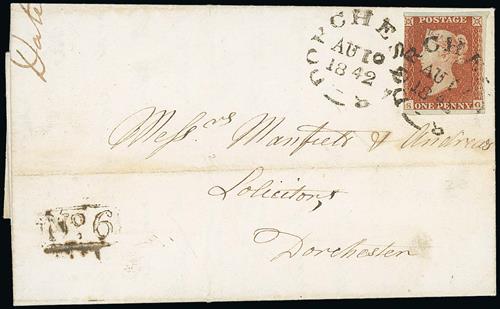 Date
DORCHESTER
AU 10
1842
DORCHESTER
AU
18
POSTAGE
ONE PENNY
S G
Mess.rs Manfield & Andrews
Solicitors
Dorchester
No. 6